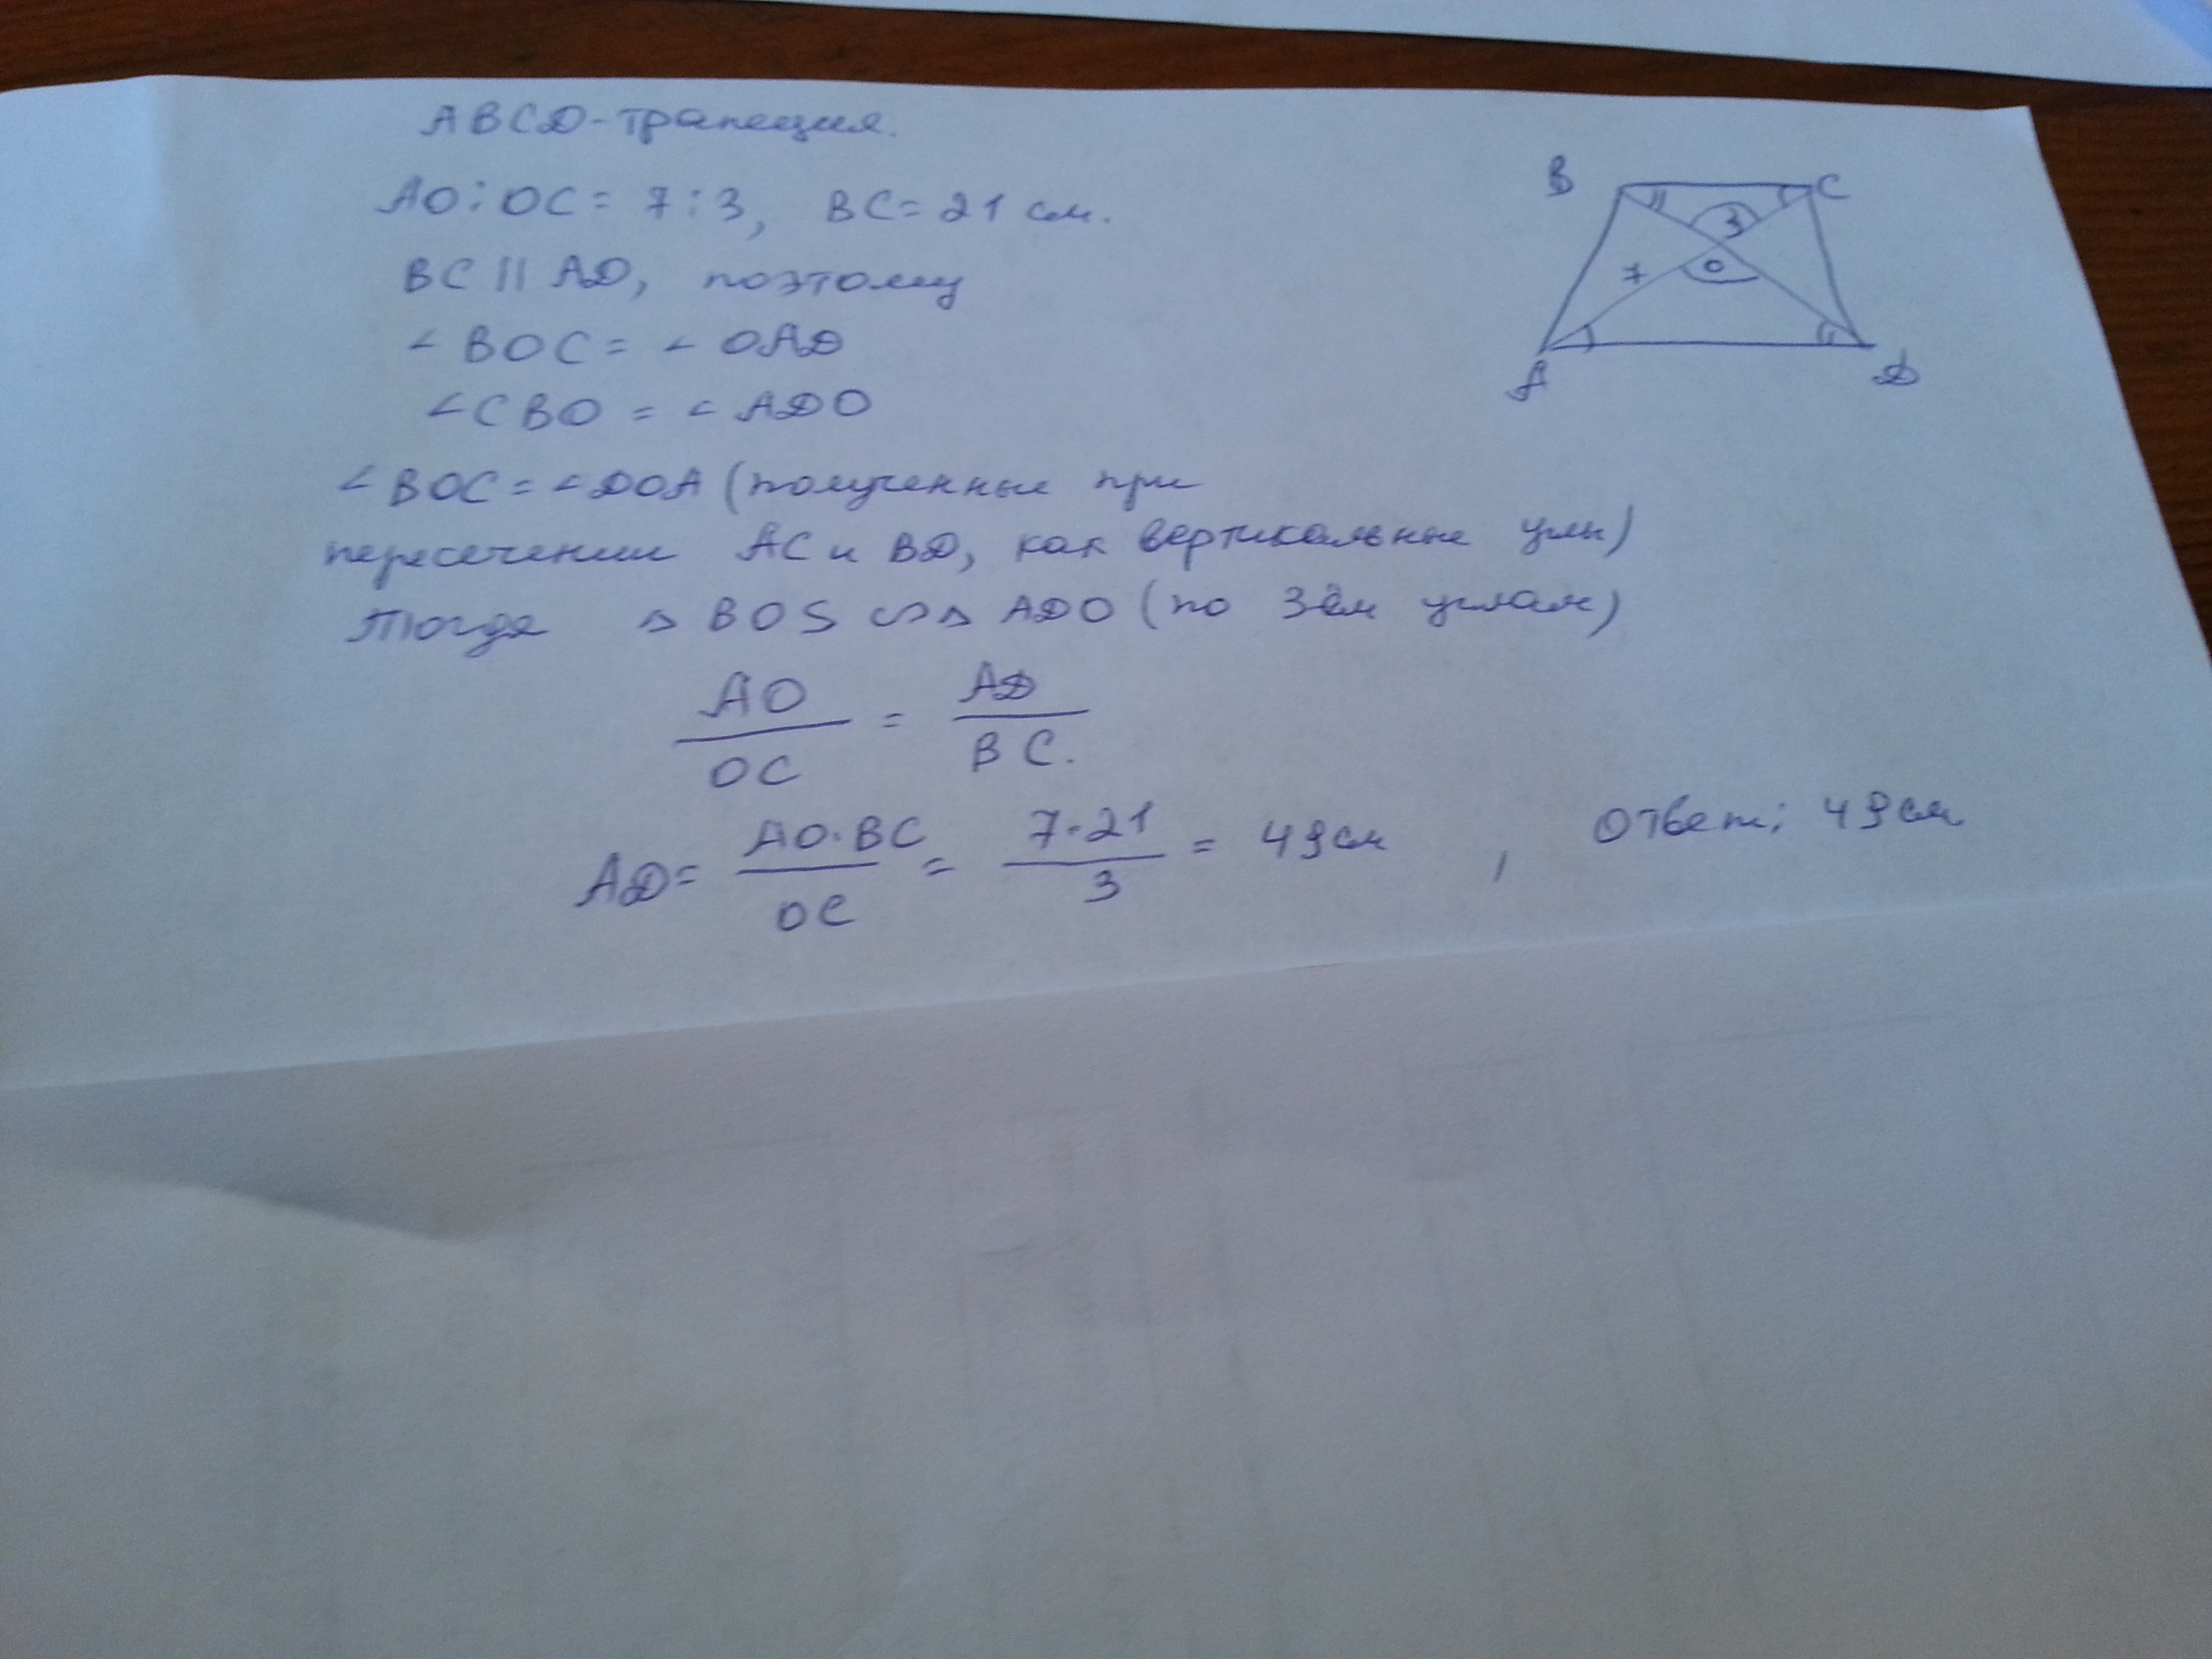 ABCD-трапеция.
AO:OC = 7:3, BC = 21 см.
BC || AD, поэтому
∠BOC = ∠OAD
∠CBO = ∠ADO
∠BOC = ∠DOA (полученные при
пересечении AC и BD, как вертикальные углы)
Тогда △BOS ∽ △ADO (по 3ём углам)
AO/OC = AD/BC.
AD = AO·BC/OC = 7·21/3 = 49 см, Ответ: 49 см
B
C
3
7
O
A
D